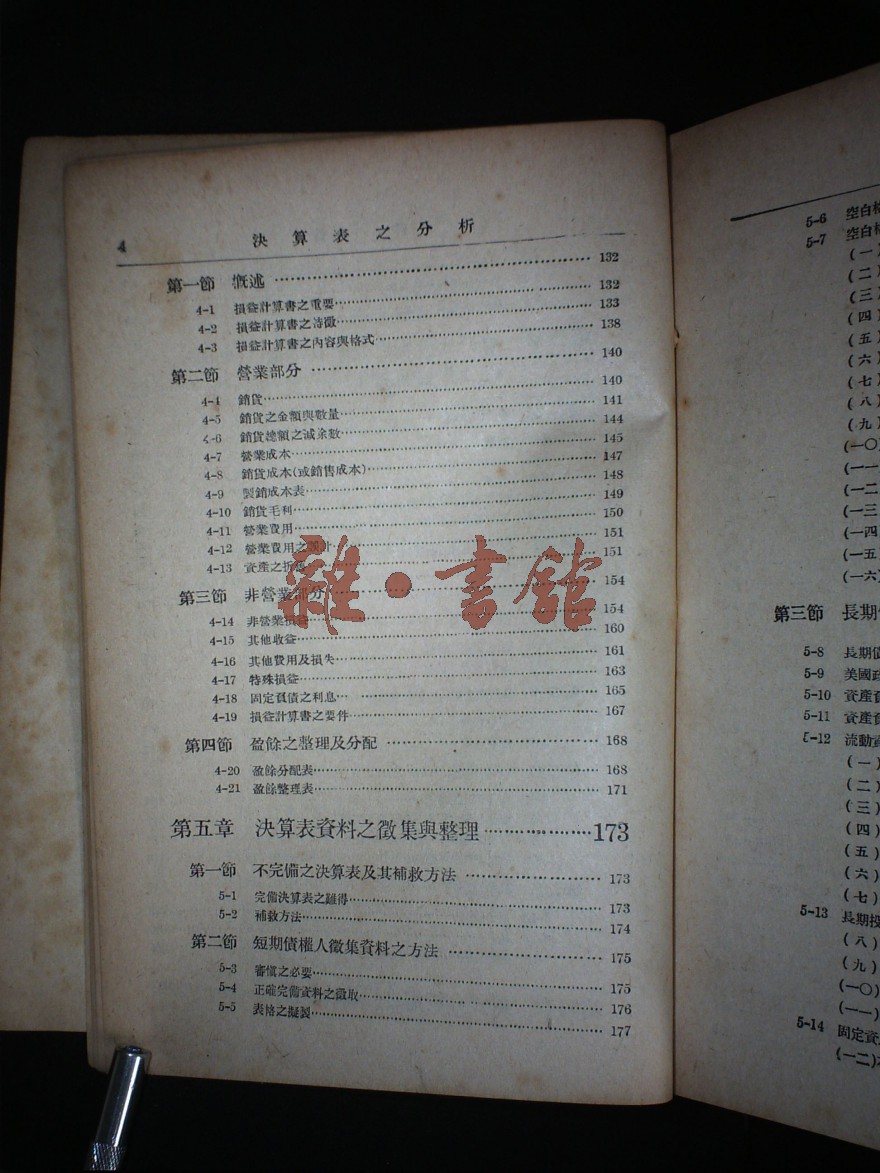 4 決算表之分析
第一節 慨述 132
4-1 損益計算書之重要 132
4-2 損益計算書之特徵 133
4-3 損益計算書之內容與格式 138
第二節 營業部分 140
4-4 銷貨 140
4-5 銷貨之金額與數量 141
4-6 銷貨總額之減余數 144
4-7 營業成本 145
4-8 銷貨成本(或銷售成本) 147
4-9 製銷成本表 148
4-10 銷貨毛利 149
4-11 營業費用 150
4-12 營業費用之計 151
4-13 資產之折舊 151
第三節 非營業部分 154
4-14 非營業損益 154
4-15 其他收益 160
4-16 其他費用及損失 161
4-17 特殊損益 163
4-18 固定負債之利息 165
4-19 損益計算書之要件 167
第四節 盈餘之整理及分配 168
4-20 盈餘分配表 168
4-21 盈餘整理表 171
第五章 決算表資料之徵集與整理 173
第一節 不完備之決算表及其補救方法 173
5-1 完備決算表之難得 173
5-2 補救方法 174
第二節 短期債權人徵集資料之方法 175
5-3 審慎之必要 175
5-4 正確完備資料之徵取 176
5-5 表格之擬製 177
雜·書館
5-6 空白
5-7 空白
(一)
(二)
(三)
(四)
(五)
(六)
(七)
(八)
(九)
(一〇)
(一一)
(一二)
(一三)
(一四)
(一五)
(一六)
第三節 長期
5-8 長期債
5-9 美國政
5-10 資產
5-11 資產
5-12 流動資
(一)
(二)
(三)
(四)
(五)
(六)
(七)
5-13 長期投
(八)
(九)
(一〇)
(一一)
5-14 固定資
(一二)